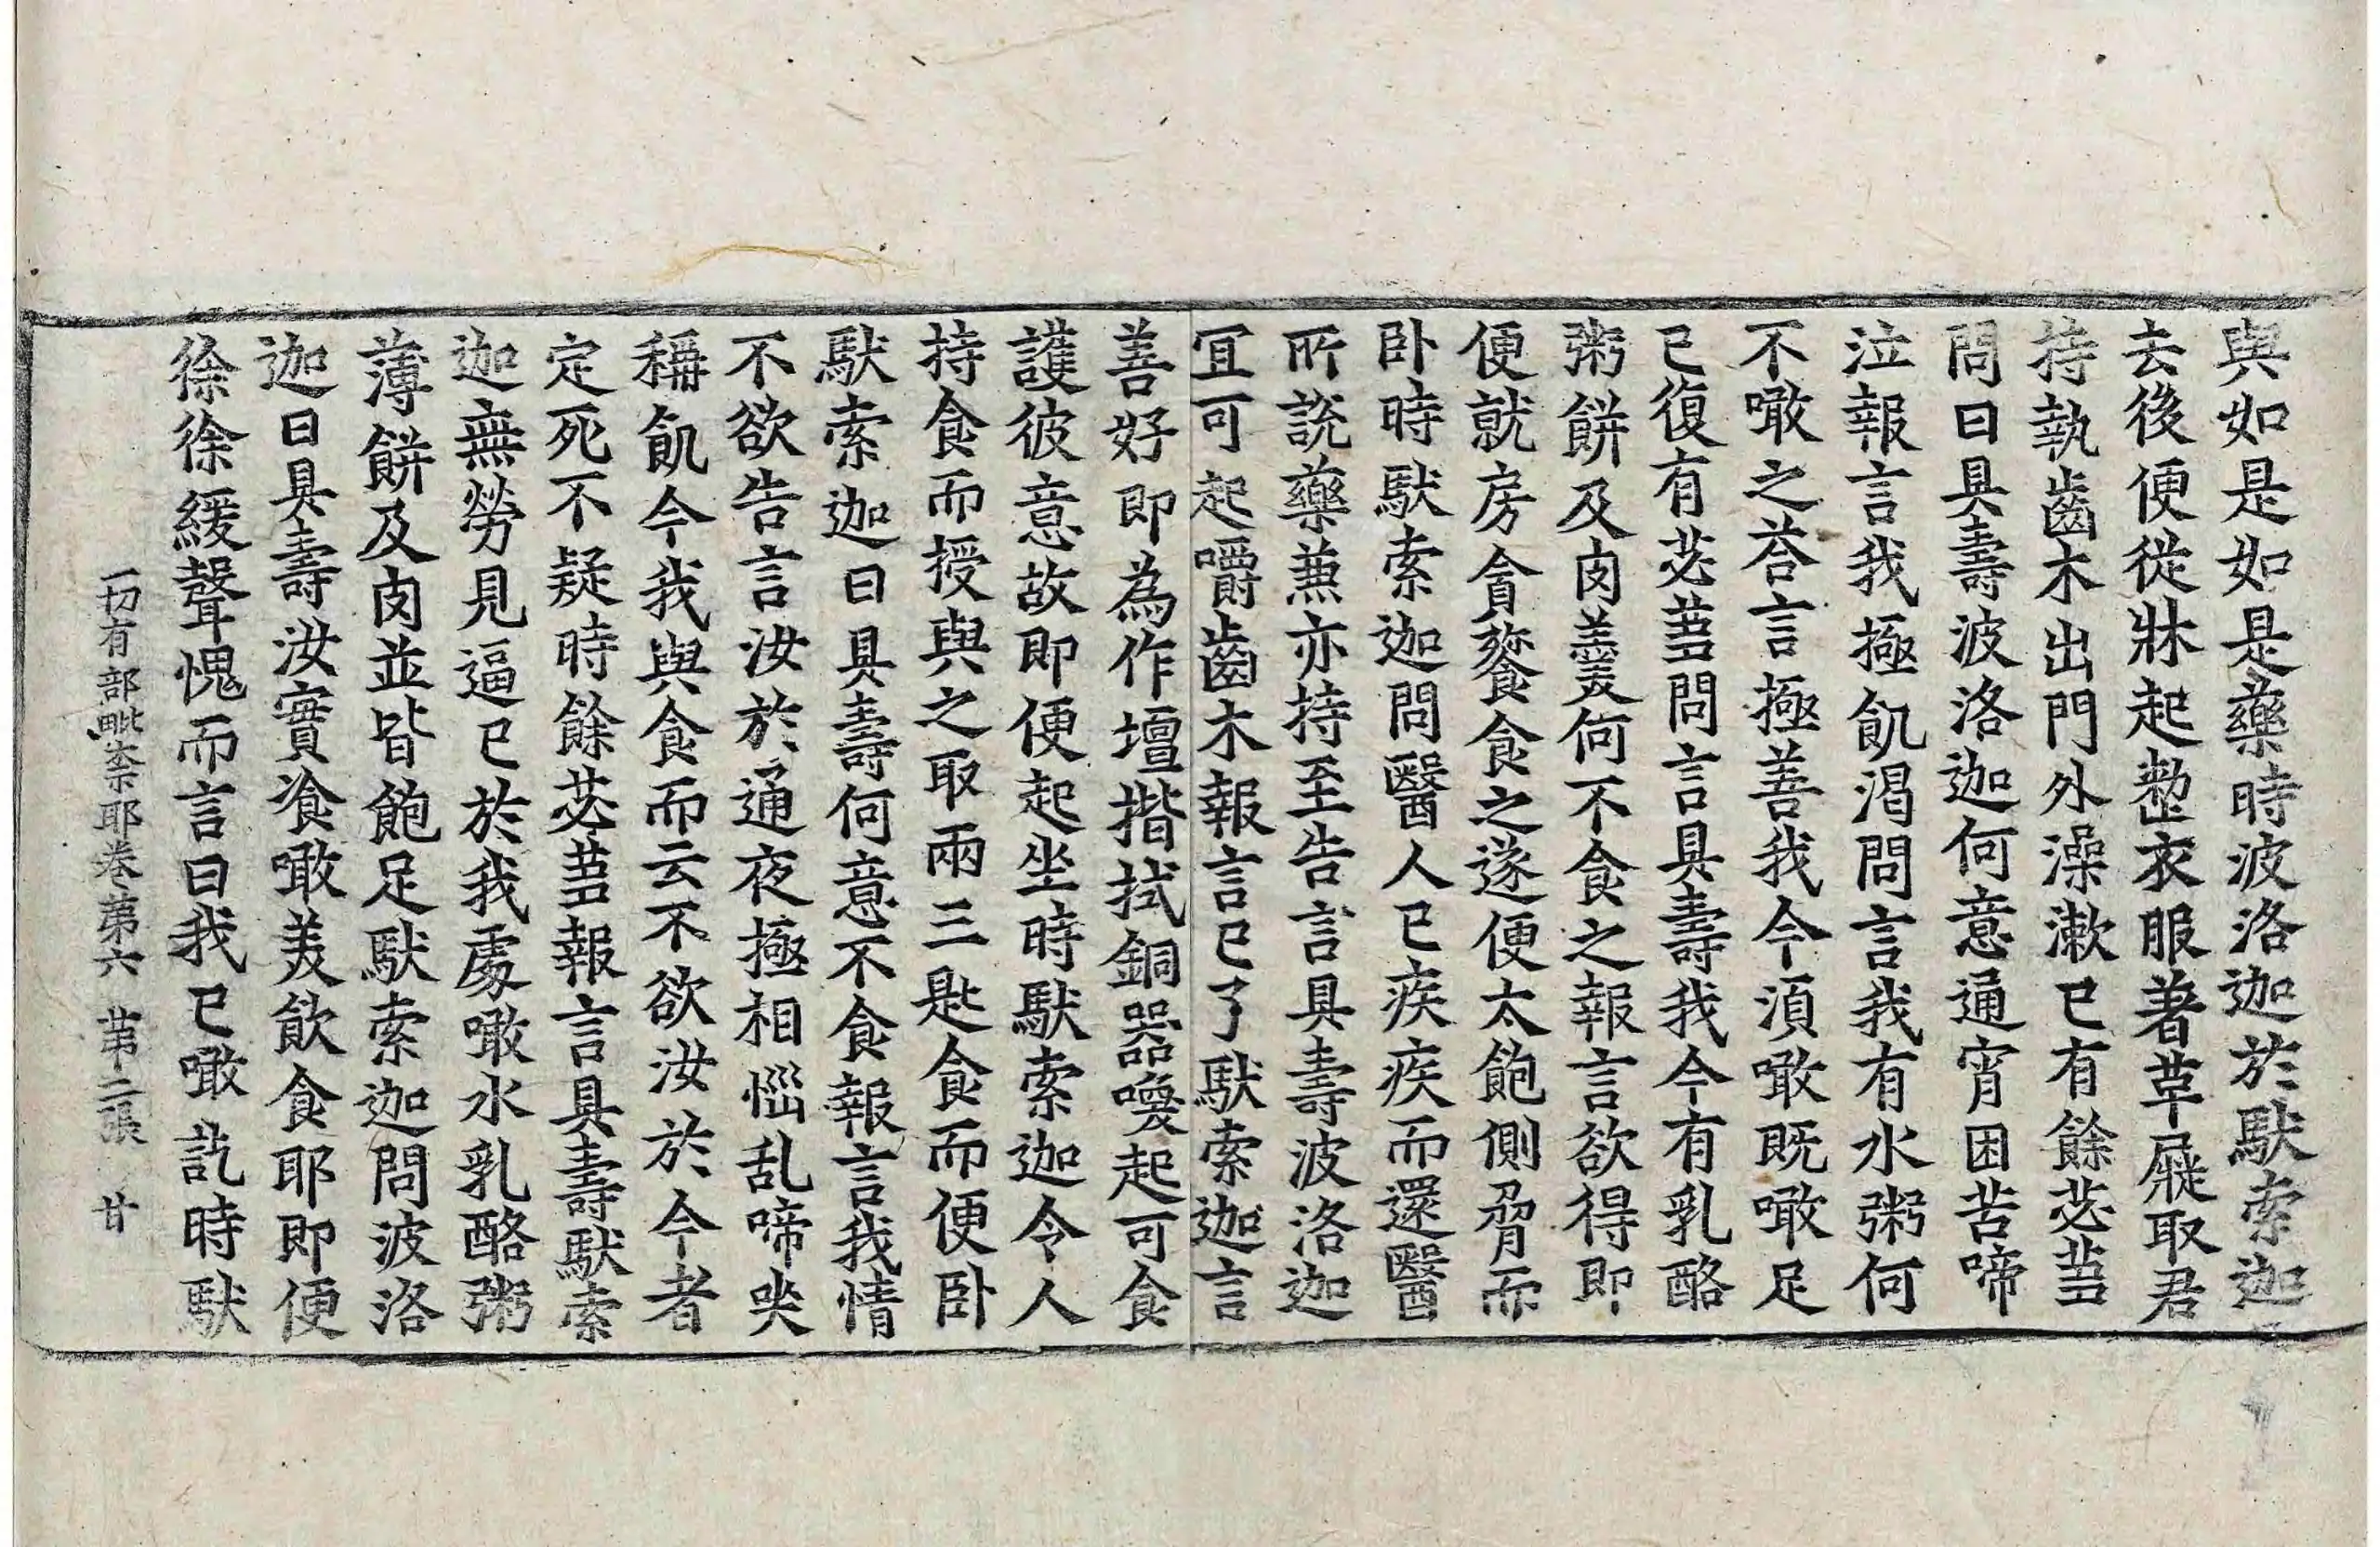 與如是如是藥時波洛迦於馱索迦
去後便從牀起整衣服著革屣取君
持執齒木出門外澡漱已有餘苾芻
問曰具壽波洛迦何意通宵困苦啼
泣報言我極飢渴問言我有水粥何
不噉之荅言極善我今湏噉既噉足
已復有苾芻問言具壽我今有乳酪
粥餅及肉羹何不食之報言欲得即
便就房貪餮食之遂便太飽側脅而
卧時馱索迦問醫人已疾疾而還醫
所說藥兼亦持至告言具壽波洛迦
冝可起嚼齒木報言已了馱索迦言
善好即為作壇揩拭銅器喚起可食
護彼意故即便起坐時馱索迦令人
持食而授與之取兩三匙食而便卧
馱索迦曰具壽何意不食報言我情
不欲告言汝於通夜極相惱乱啼哭
稱飢今我與食而云不欲汝於今者
定死不疑時餘苾芻報言具壽馱索
迦無勞見逼已於我處噉水乳酪粥
薄餅及肉並皆飽足馱索迦問波洛
迦曰具壽汝實飡噉羙飲食耶即便
徐徐緩聲愧而言曰我已噉訖時馱
一切有部毗柰耶卷第六　苐二張　廿